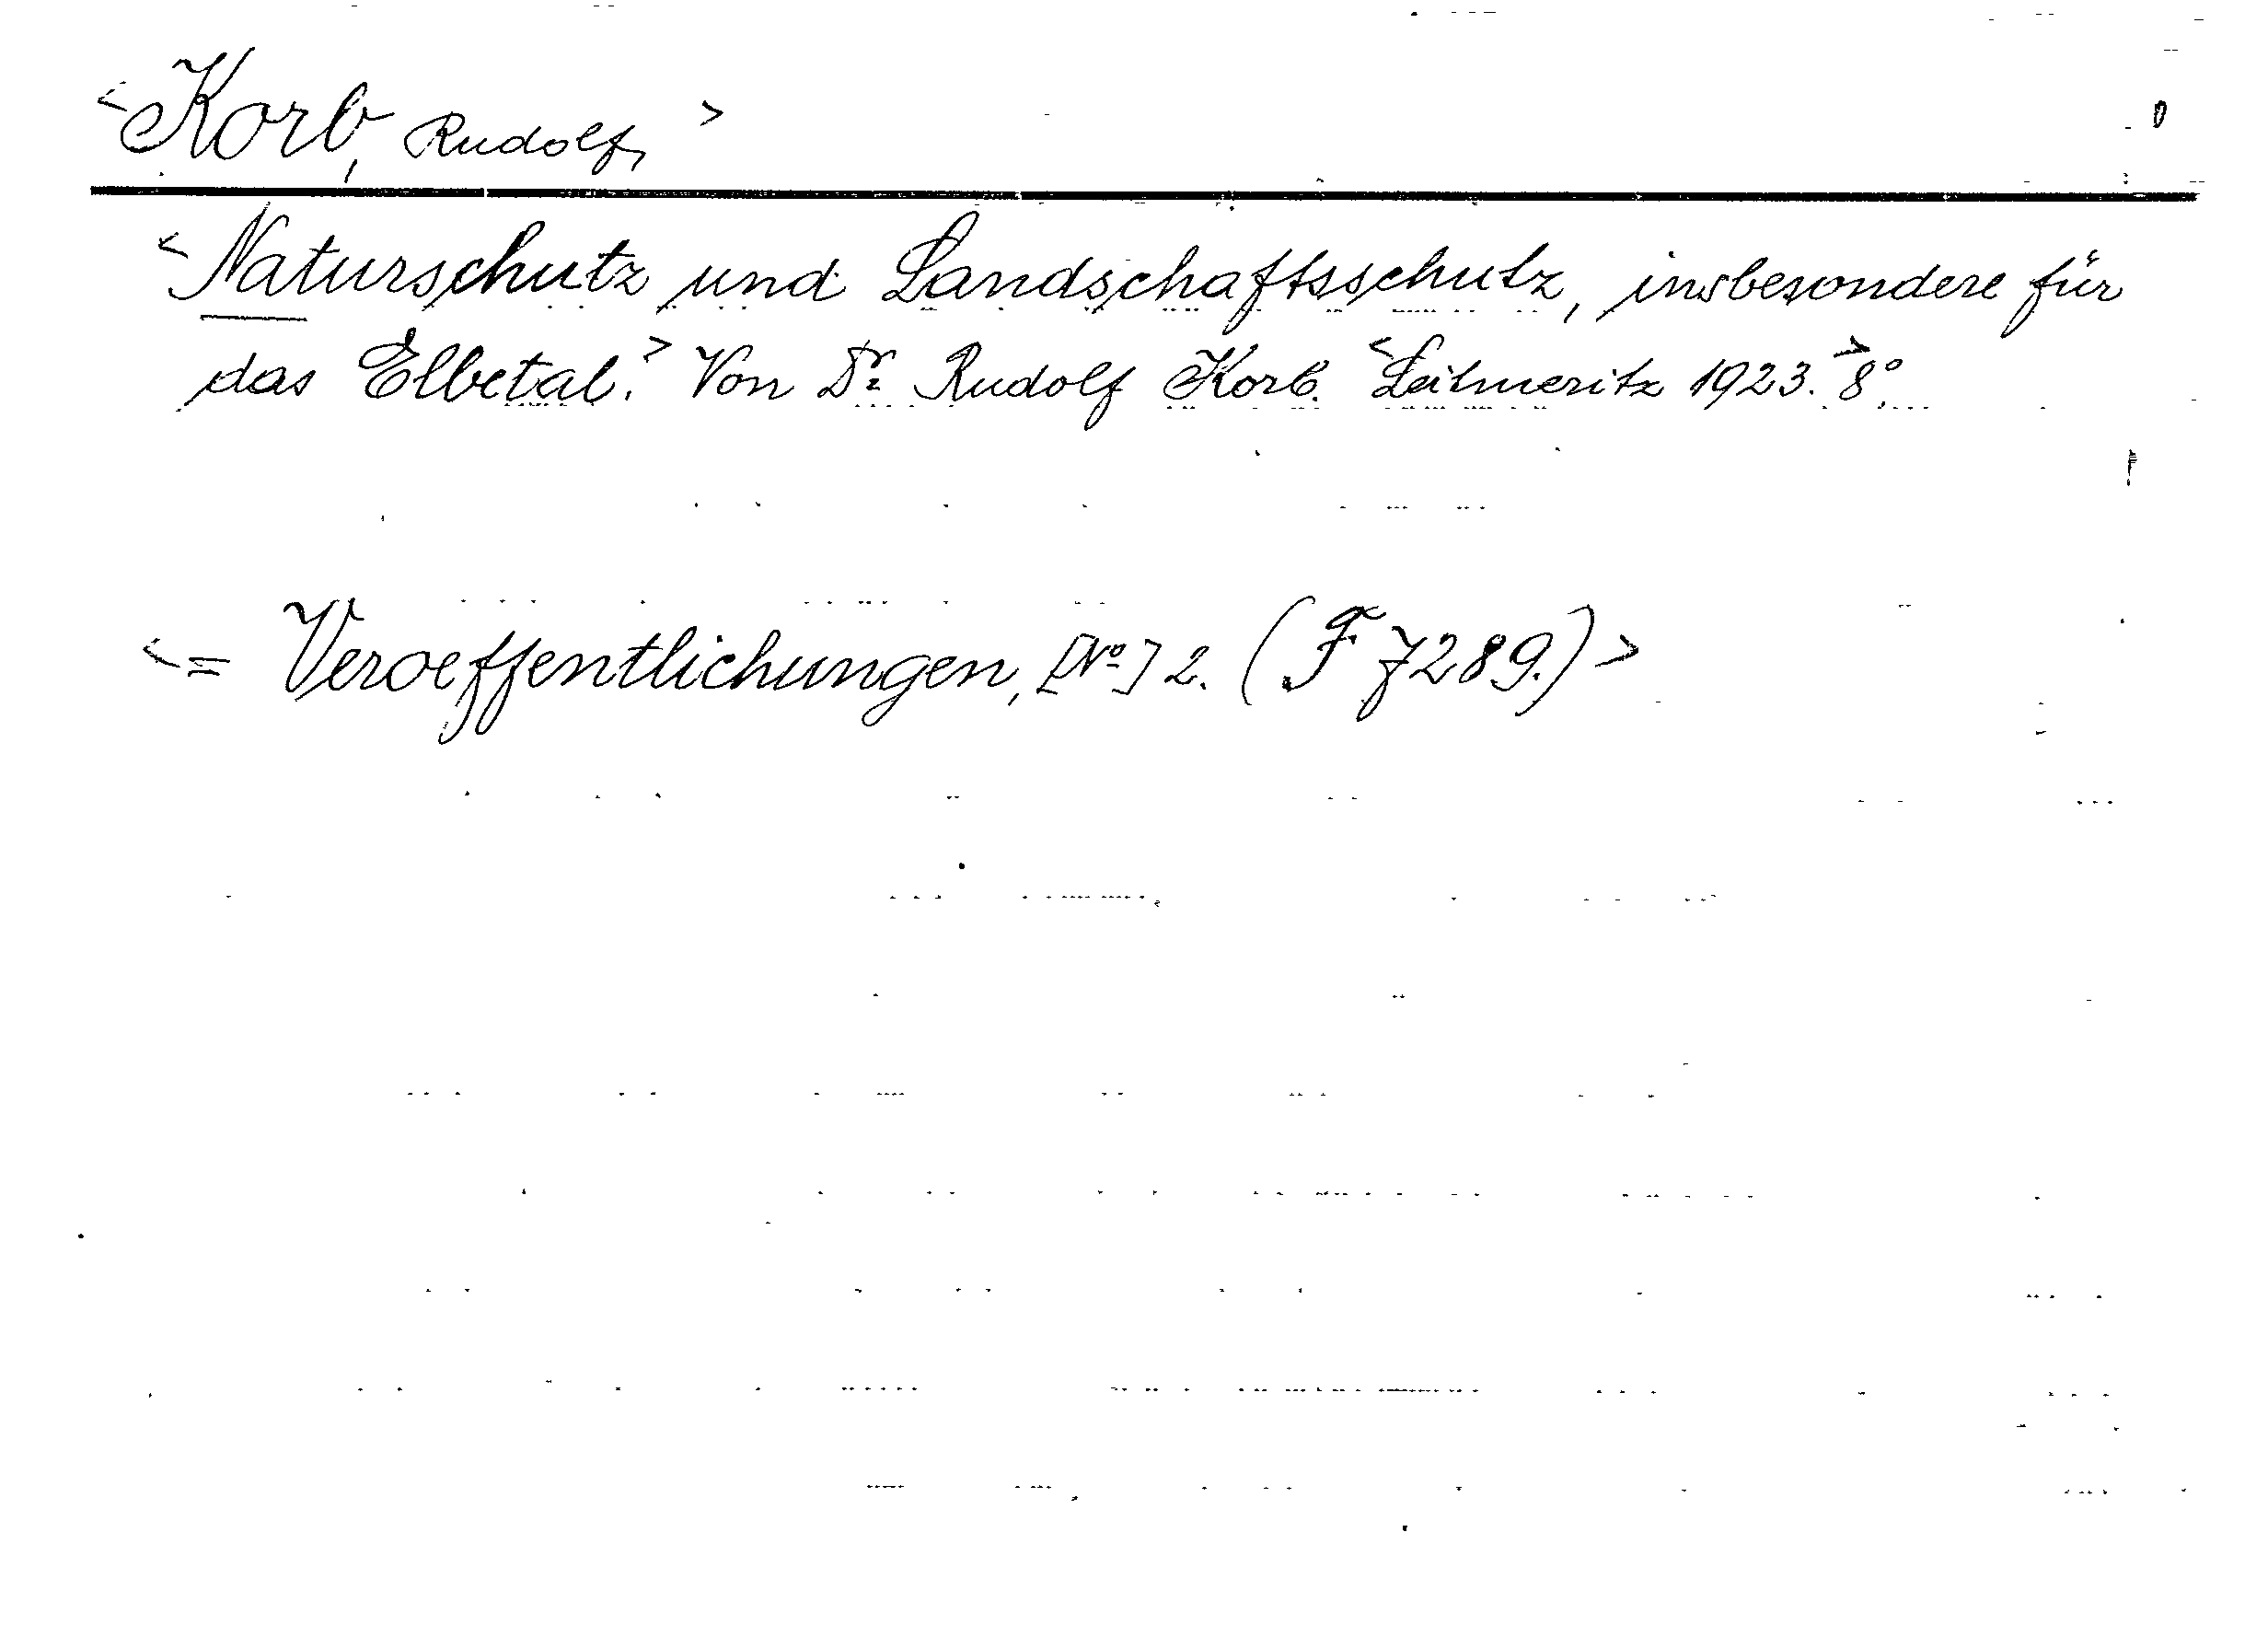 <Korb, Rudolf,>
<Naturschutz und Landschaftsschutz, insbesondere für
das Elbetal.> Von Dr. Rudolf Korb. <Leitmeritz 1923.> 8°.
<= Veroeffentlichungen, [No] 2. (F 7289.)>